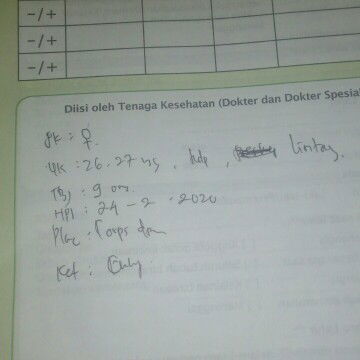 -/+
-/+
-/+
Diisi oleh Tenaga Kesehatan (Dokter dan Dokter Spesia
JK : ♀
UK : 26-27 mg, hdp, lintang
TBJ : 9 ons.
HPL : 24-2-2020
Plac : Corpus dpn
Ket :